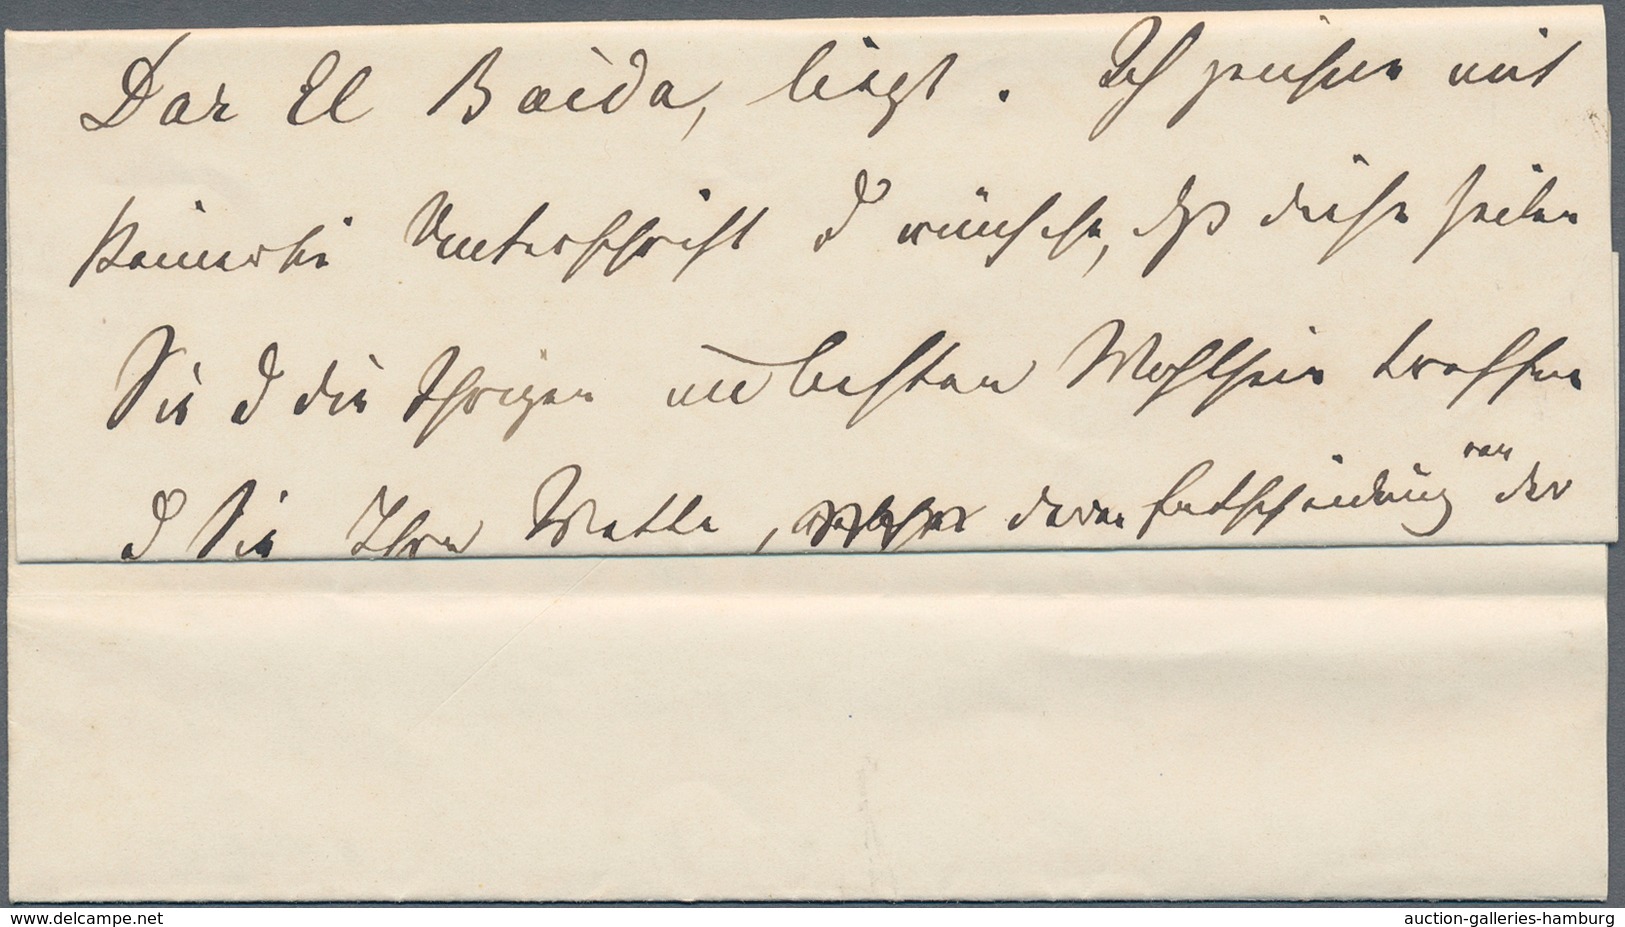 Dar El Baida, liegt. Ich zeichne mit
Unterschrift & wünsche, daß diese Zeilen
Sie & die Ihrigen im besten Wohlsein treffen
& Sie Ihre Wette, deren Entscheidung von der
www.delcampe.net
auction-galleries-hamburg